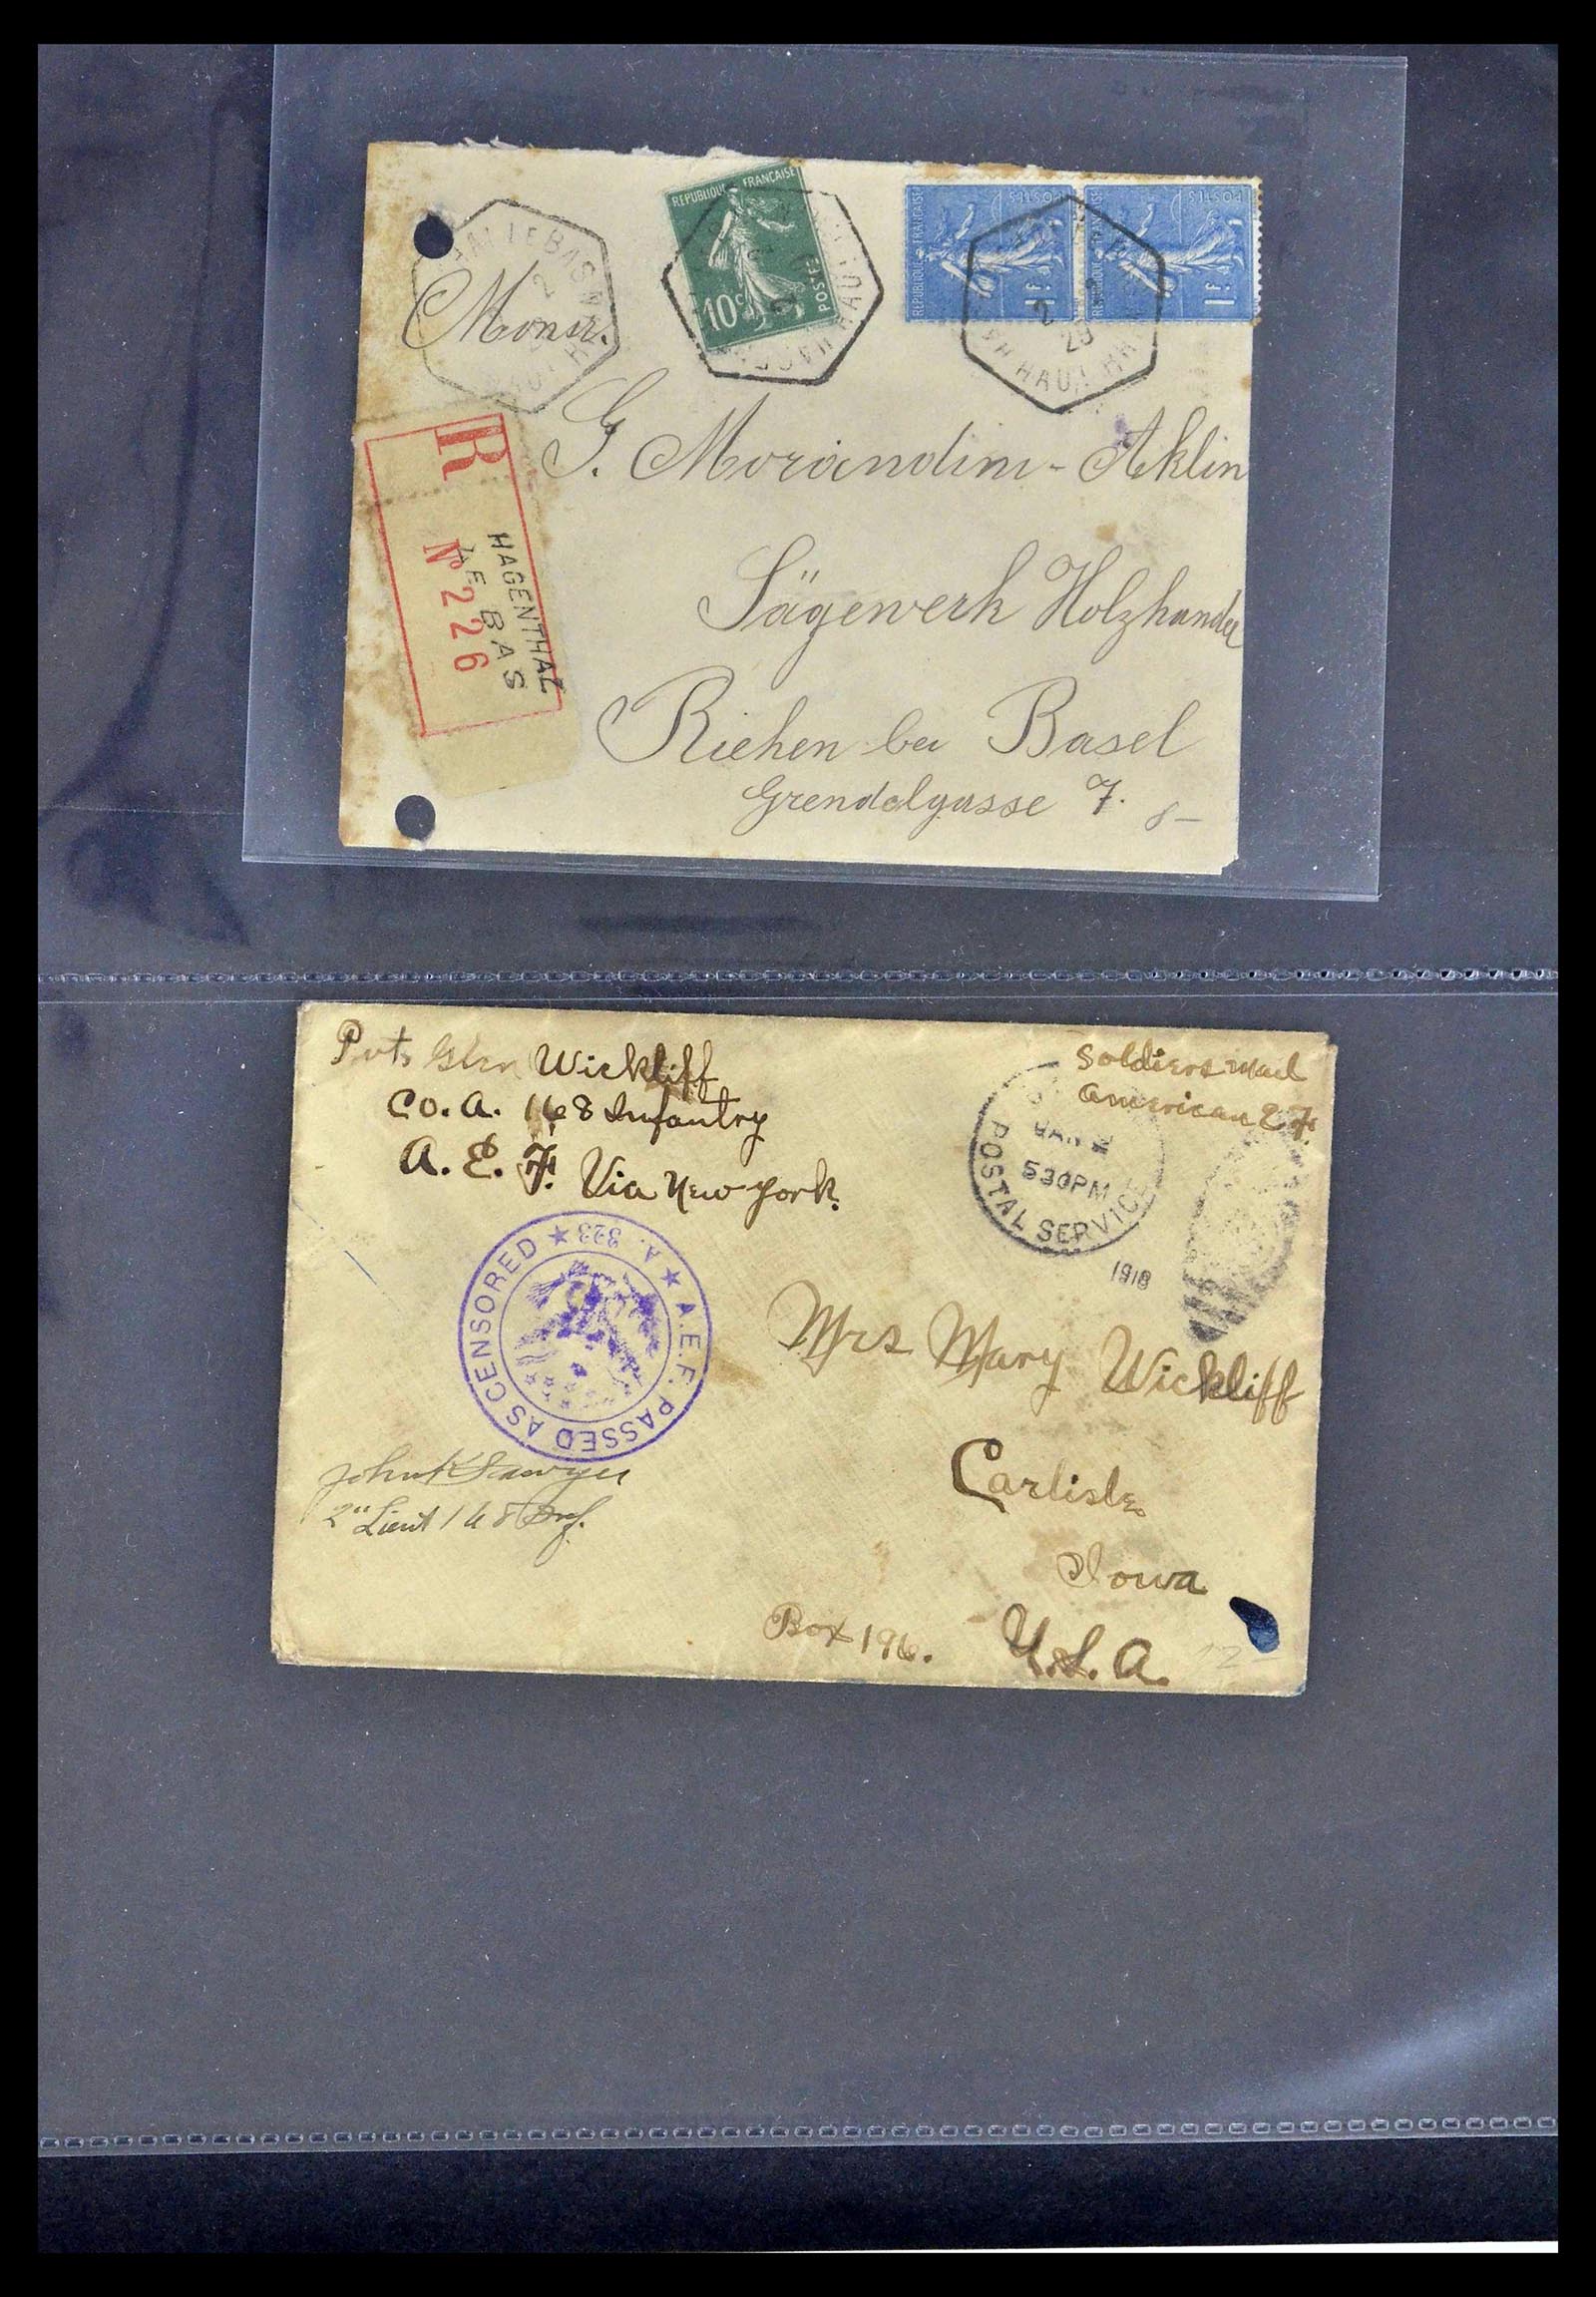 RÉPUBLIQUE FRANÇAISE
10c
POSTES
RÉPUBLIQUE FRANÇAISE
POSTES
1F
RÉPUBLIQUE FRANÇAISE
POSTES
1F
LE BAS
2
HAUT
2
29
HAUT RH
Monsr.
G. Morandini-Aklin
Sägewerk Holzhandel
Riehen bei Basel
Grendelgasse 7.
8-
R
HAGENTHAL
LE BAS
N° 226
Pvt. Glen Wickliff
Co. A. 168 Infantry
A. E. F. Via New York.
Soldiers Mail
American E F.
JAN 2
530PM
POSTAL SERVICE
1918
A.E.F. PASSED AS CENSORED
A. 323
Mrs Mary Wickliff
Carlisle
Iowa
Box 196. U.S.A.
12-
Sawyer
2" Lieut 168 Inf.